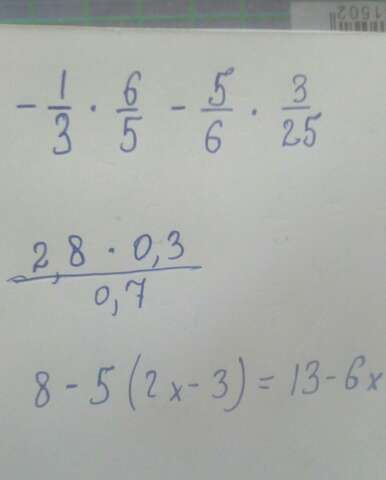 1502
-1/3 · 6/5 - 5/6 · 3/25
2,8 · 0,3
0,7
8 - 5 (2x - 3) = 13 - 6x